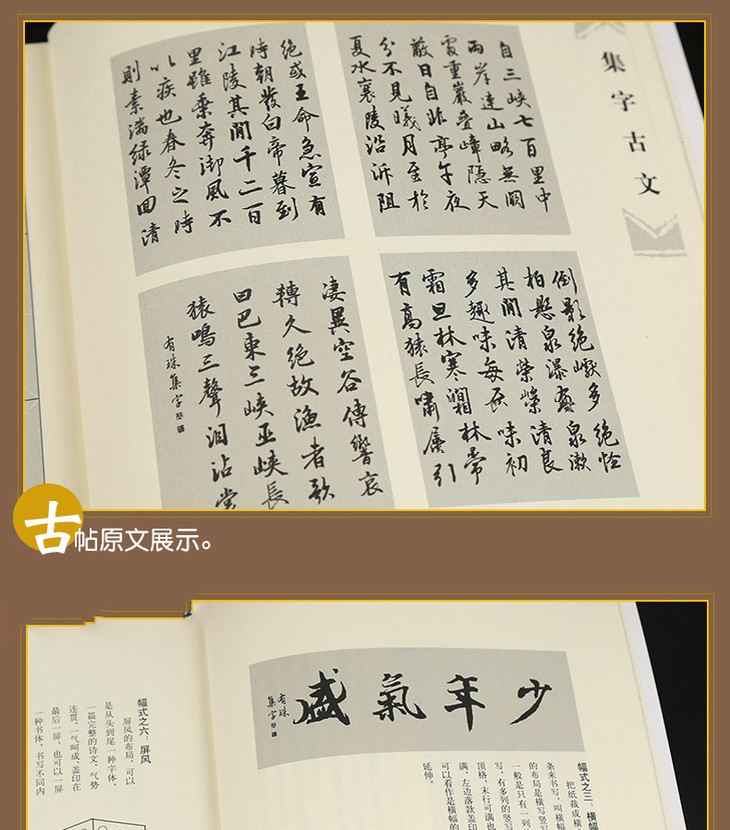 集字古文
自三峡七百里中
兩岸連山略無闕
處重巖叠嶂隱天
蔽日自非亭午夜
分不見曦月至於
夏水襄陵沿泝阻
絶或王命急宣有
時朝發白帝暮到
江陵其間千二百
里雖乗奔御風不
以疾也春冬之時
則素湍緑潭回清
倒影絶巘多絶怪
柏懸泉瀑泉漱
其間清榮榮清良
多趣味每味初
霜旦林寒澗林常
有高猿長嘯屬引
淒異空谷傳響哀
轉久絶故漁者歌
曰巴東三峡巫峡長
猿鳴三聲泪沾裳
有珠集字
古帖原文展示。
少年氣盛
有珠
集字
幅式之三：横幅
把纸裁成横
条来书写，叫横幅
的布局是横写竖写
一般是只有一列
写，有多列的竖写
顶格，末行可满也
满，左边落款盖印
可以看作是横幅的
延伸。
幅式之六：屏风
屏风的布局，可以
是从头到尾一种字体，
一篇完整的诗文，气势
连贯，一气呵成，盖印在
最后一屏，也可以一屏
一种书体，书写不同内